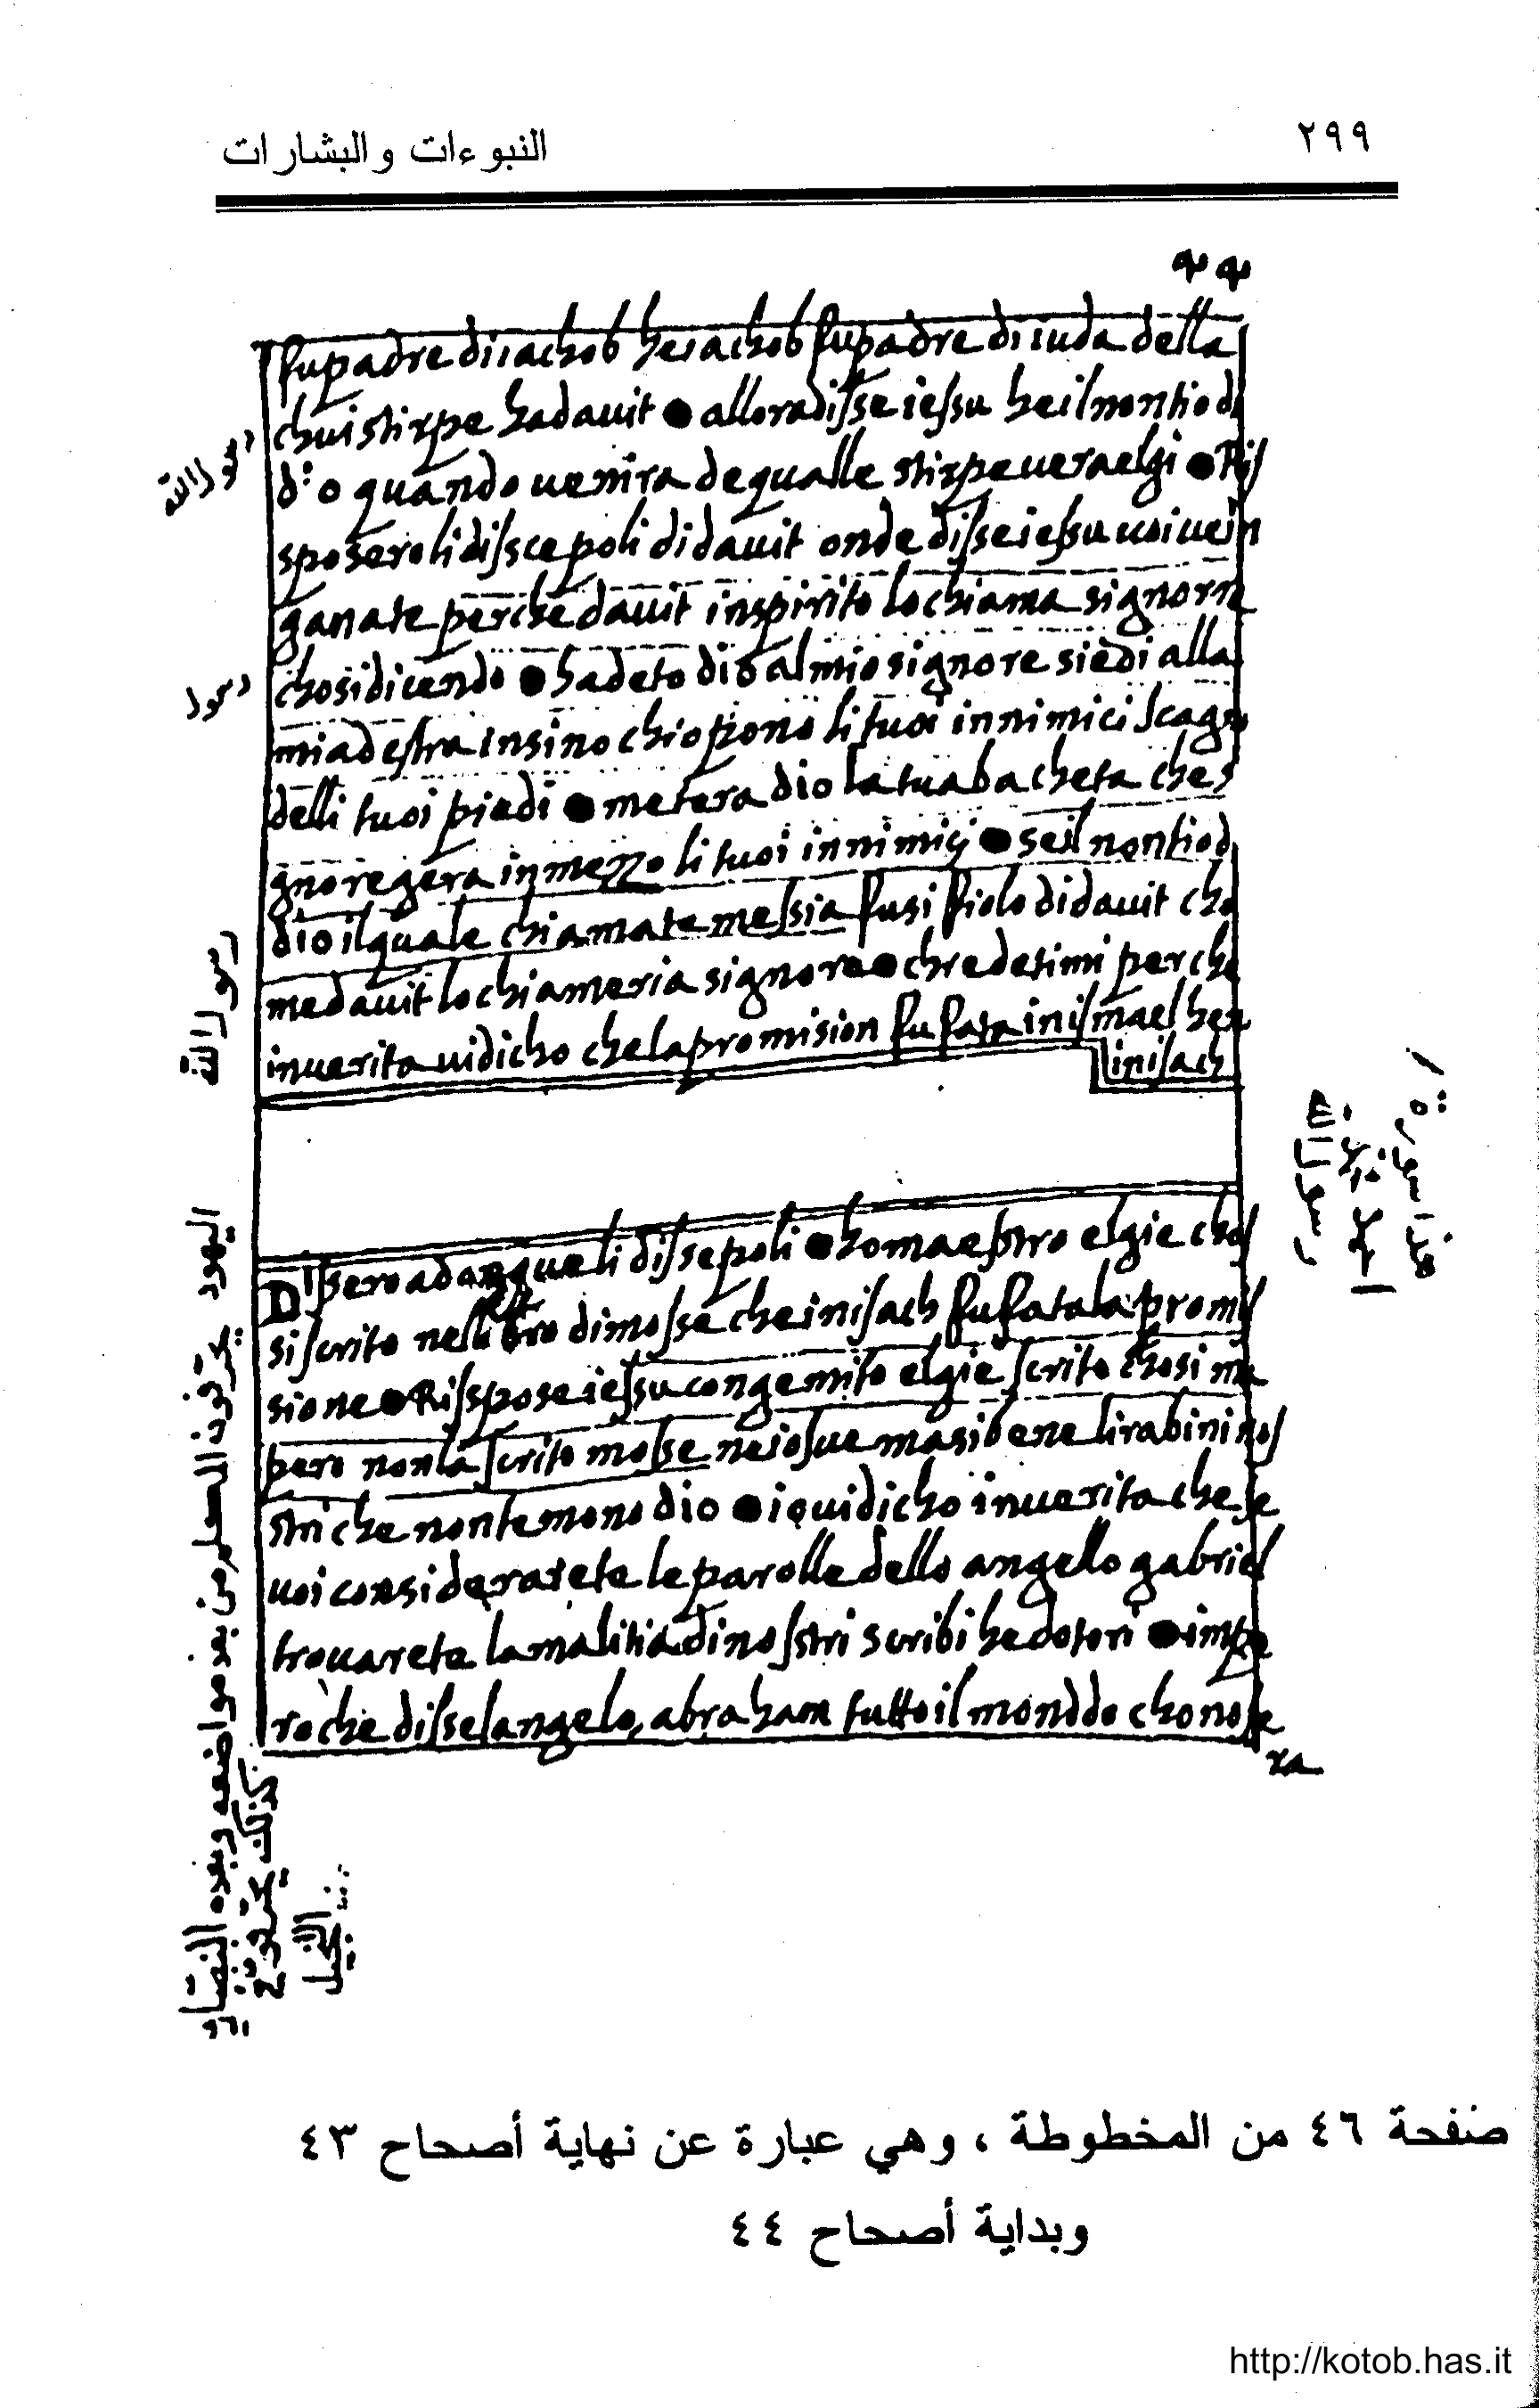 النبوءات والبشارات ٢٩٩
fu padre di iachob he iachob fu padre di iuda della
chui stirpe ha dauit ● allora disse iessu he il nontio di
dio quando uenira de qualle stirpe uera elgi ● Ris
sposero li disscepoli di dauit onde disse iessu uoi ue in
ganate perche dauit in spirito lo chiama signorre
chosi dicendo ● ha deto dio al mio signore siedi alla
mia destra insino chio pono li tuoi innimici scagno
delli tuoi piedi ● metera dio la tua bacheta che si
gnoregera in mezzo li tuoi innimicij ● se il nontio di
dio il quale chiamate messia fusi fiolo di dauit cho
me dauit lo chiameria signore ● chredetimi perche
in uerita ui dicho che la promision fu fata in ismael he non
in isach
Dissero adonque li dissepoli ● ho maesstro elgie chos
si scrito nel libro di mosse che in isach fu fata la promis
sione ● Risspose iessu con gemito elgie scrito chosi ma
pero non la scrito mosse ne iosue ma sibene li rabini nos
stri che non temono dio ● io ui dicho in uerita che se
uoi considerarete le parolle dello angello gabriel
trouarete la malitia di nosstri scribi he dotori ● impe
ro che disse langelo, abraham tutto il monddo chonosse
ra
رسول الله
صفحة ٤٦ من المخطوطة ، وهي عبارة عن نهاية أصحاح ٤٣
وبداية أصحاح ٤٤
http://kotob.has.it